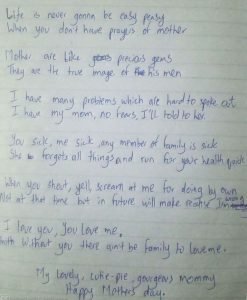 Life is never gonna be easy peasy
When you don't have prayers of mother
Mother are Like precious gems
They are the true image of his men
I have many problems which are hard to spoke out
I have my mom, no fears, I'll told to her.
You sick, me sick, any member of family is sick
She forgets all things and run for your health quick
When you shout, yell, scream at me for doing wrong
Not at that time but in future will make realise
I love you, You love me.
Without you there ain't be family to love me.
My lovely, cutie-pie, gourgeous mommy
Happy Mother's day.